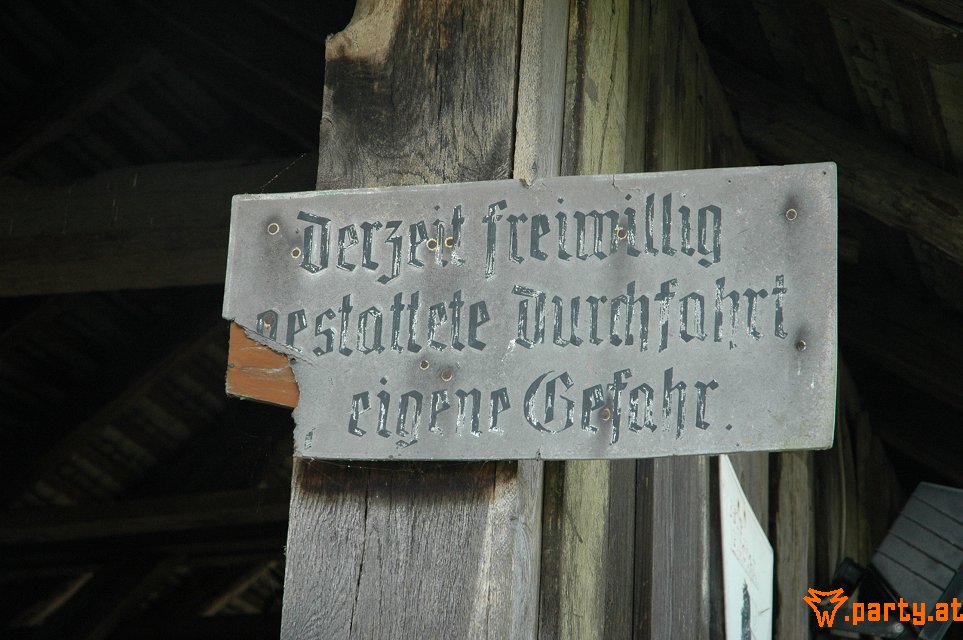 Derzeit freiwillig
gestattete Durchfahrt
eigene Gefahr.
.party.at